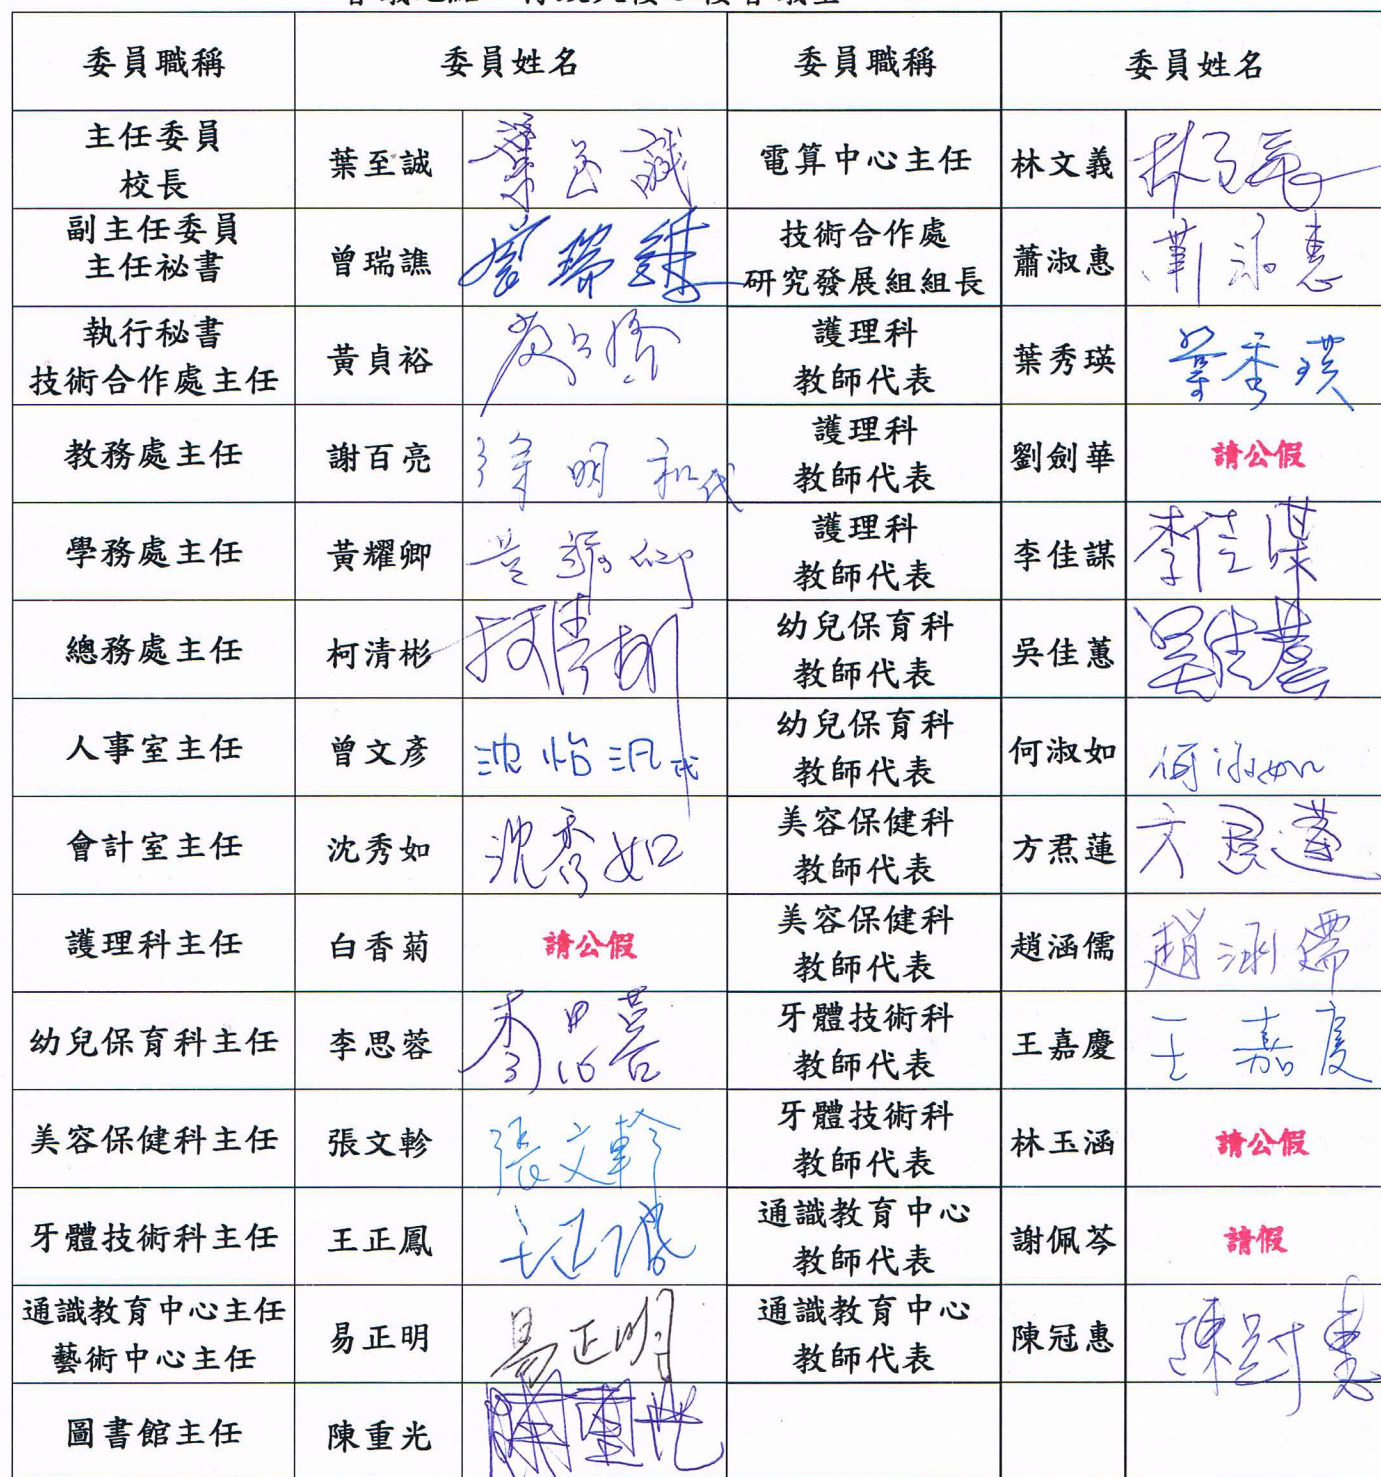 委員職稱 委員姓名 委員職稱 委員姓名
主任委員
校長 葉至誠 葉至誠 電算中心主任 林文義
副主任委員
主任祕書 曾瑞譙 曾瑞譙 技術合作處
研究發展組組長 蕭淑惠 蕭淑惠
執行秘書
技術合作處主任 黃貞裕 護理科
教師代表 葉秀瑛 葉秀瑛
教務處主任 謝百亮 徐明和代 護理科
教師代表 劉劍華 請公假
學務處主任 黃耀卿 黃耀卿 護理科
教師代表 李佳謀 李佳謀
總務處主任 柯清彬 柯清彬 幼兒保育科
教師代表 吳佳蕙 吳佳蕙
人事室主任 曾文彥 沈怡汎代 幼兒保育科
教師代表 何淑如 何淑如
會計室主任 沈秀如 沈秀如 美容保健科
教師代表 方焄蓮 方焄蓮
護理科主任 白香菊 請公假 美容保健科
教師代表 趙涵儒 趙涵儒
幼兒保育科主任 李思蓉 李思蓉 牙體技術科
教師代表 王嘉慶 王嘉慶
美容保健科主任 張文軫 張文軫 牙體技術科
教師代表 林玉涵 請公假
牙體技術科主任 王正鳳 王正鳳 通識教育中心
教師代表 謝佩芩 請假
通識教育中心主任
藝術中心主任 易正明 易正明 通識教育中心
教師代表 陳冠惠 陳冠惠
圖書館主任 陳重光 陳重光